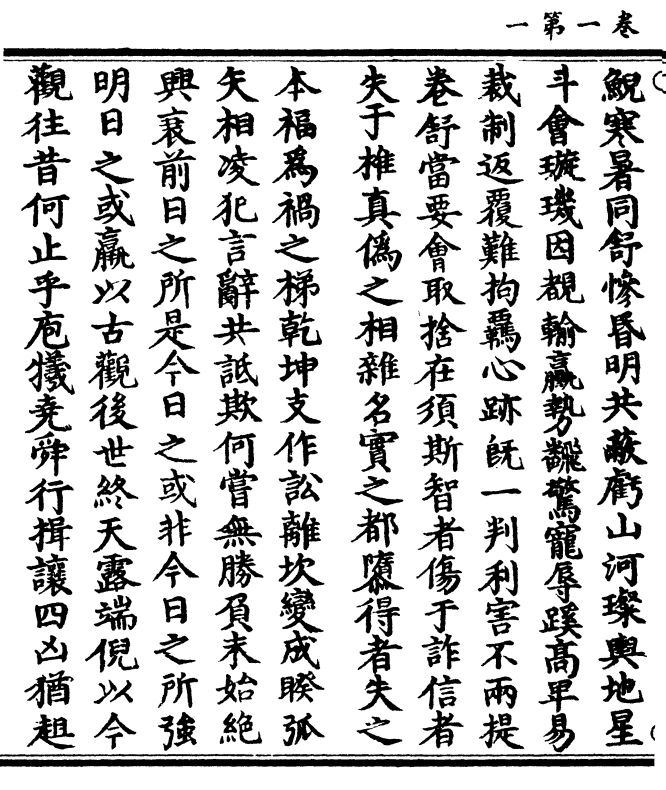 卷一第一
鯢寒暑同舒慘昏明共蔽虧山河璨輿地星
斗會璇璣因覩輸贏勢飜驚寵辱蹊高卑易
裁制返覆難拘羈心跡旣一判利害不兩提
卷舒當要會取捨在須斯智者傷于詐信者
失于椎真僞之相雜名實之都隳得者失之
本福爲禍之梯乾坤支作訟離坎變成睽弧
矢相凌犯言辭共詆欺何嘗無勝負未始絶
興衰前日之所是今日之或非今日之所強
明日之或羸以古觀後世終天露端倪以今
觀往昔何止乎庖犧堯舜行揖讓四凶猶趄